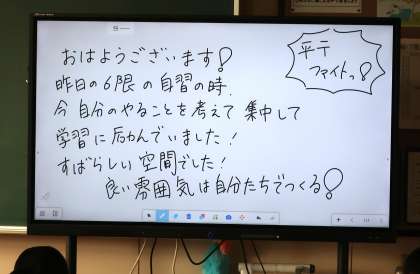 おはようございます!
平テ
ファイトっ!
昨日の6限の自習の時、
今自分のやることを考えて集中して
学習に励んでいました!
すばらしい空間でした!
良い雰囲気は自分たちでつくる!